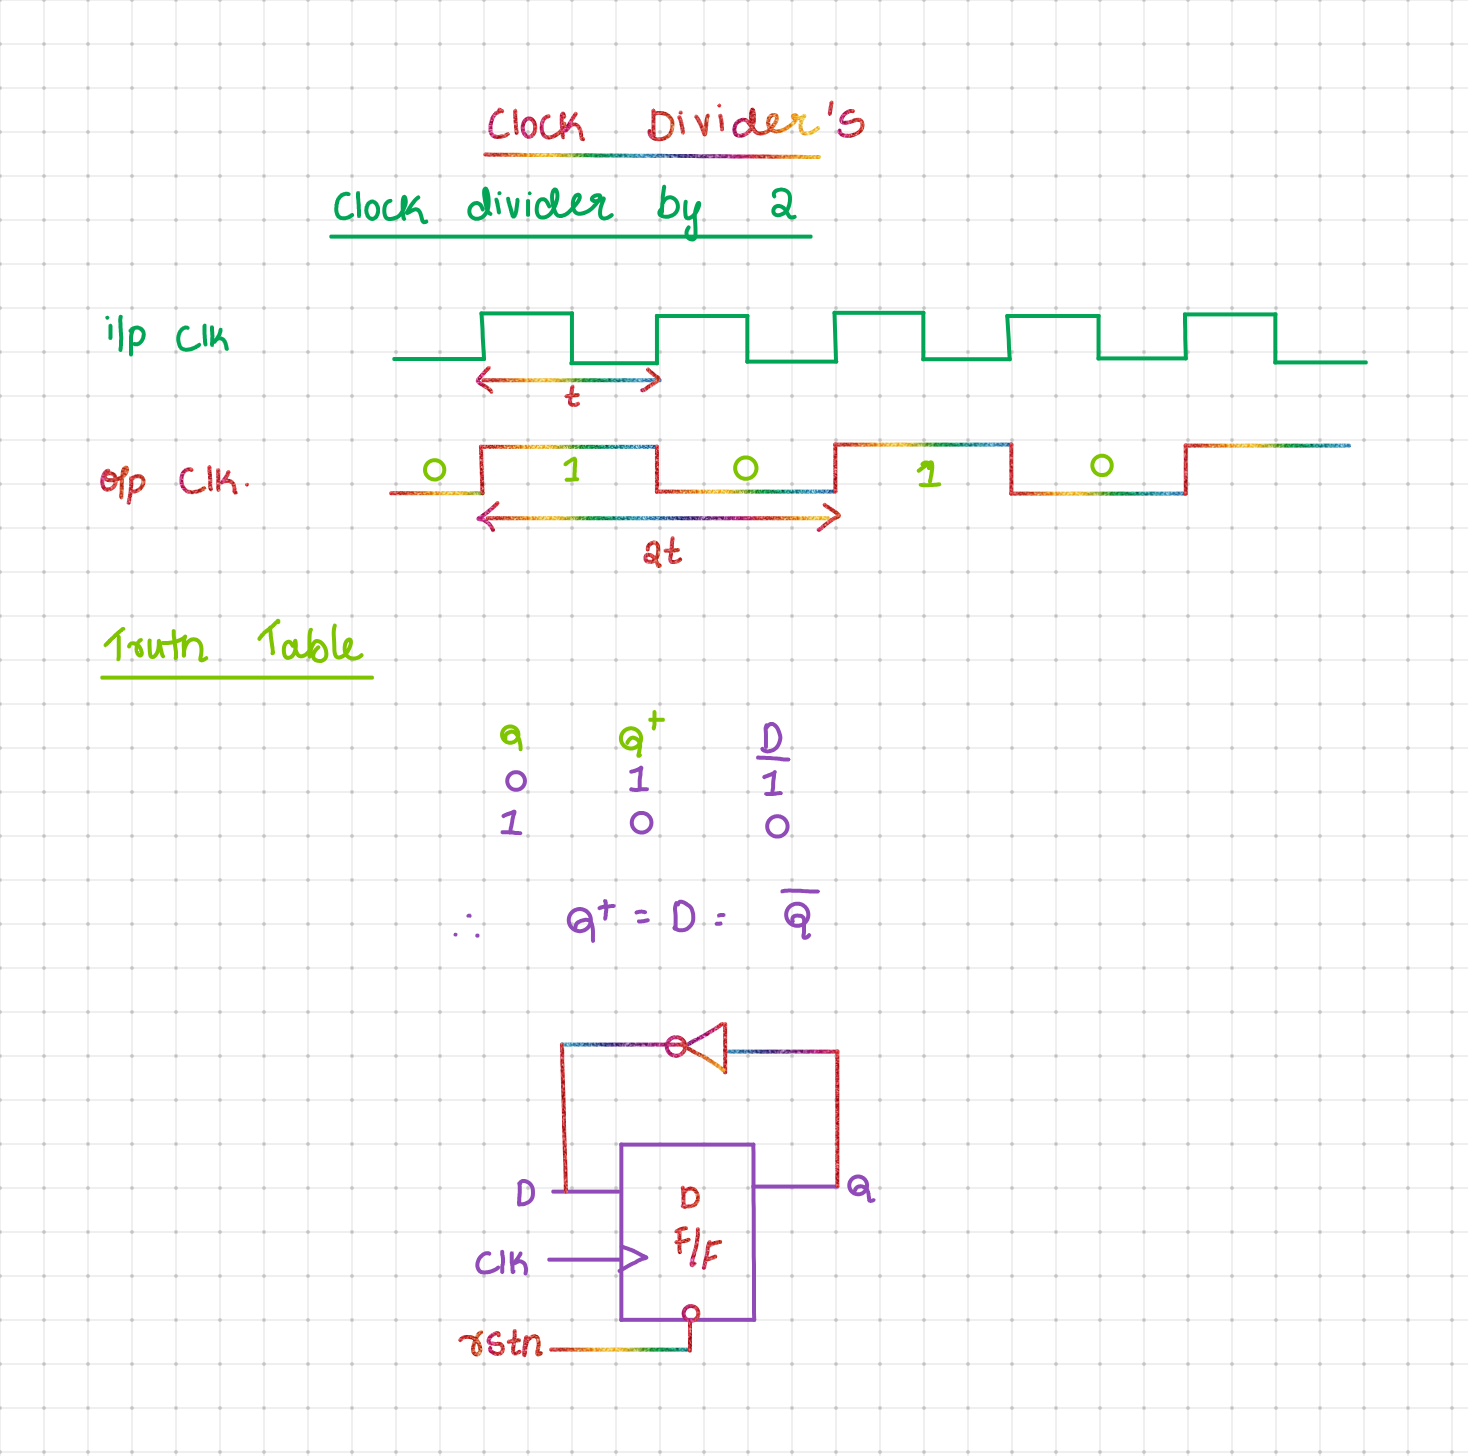 Clock Divider's
Clock divider by 2
i/p Clk
t
o/p Clk.
0 1 0 1 0
2t
Truth Table
Q Q⁺ D
0 1 1
1 0 0
∴ Q⁺ = D = Q̅
D D Q
F/F
Clk
rstn